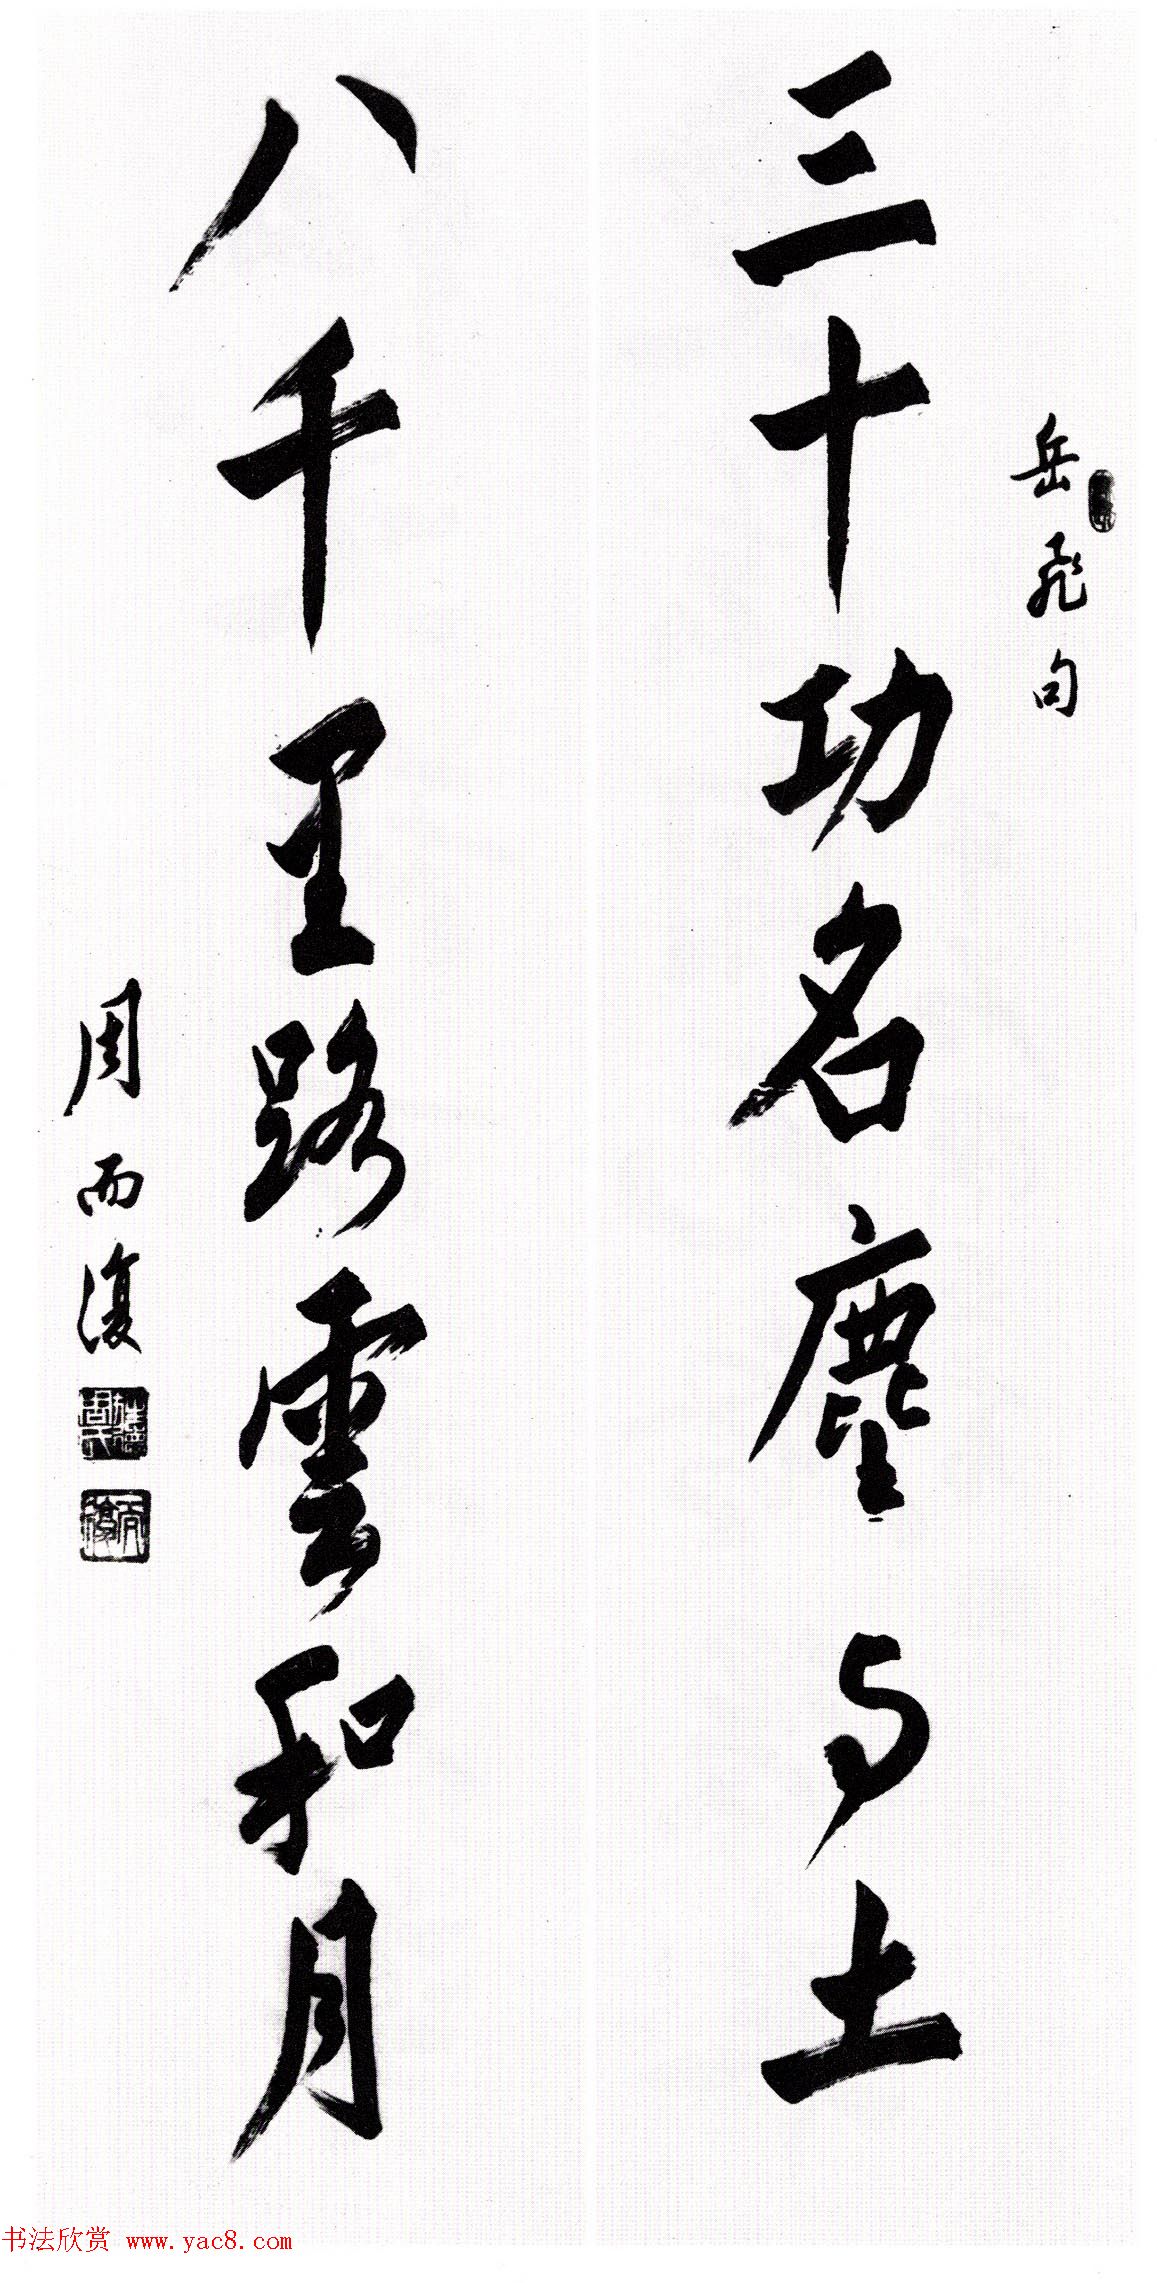 岳飛句
三十功名塵与土
八千里路雲和月
周而復
书法欣赏 www.yac8.com